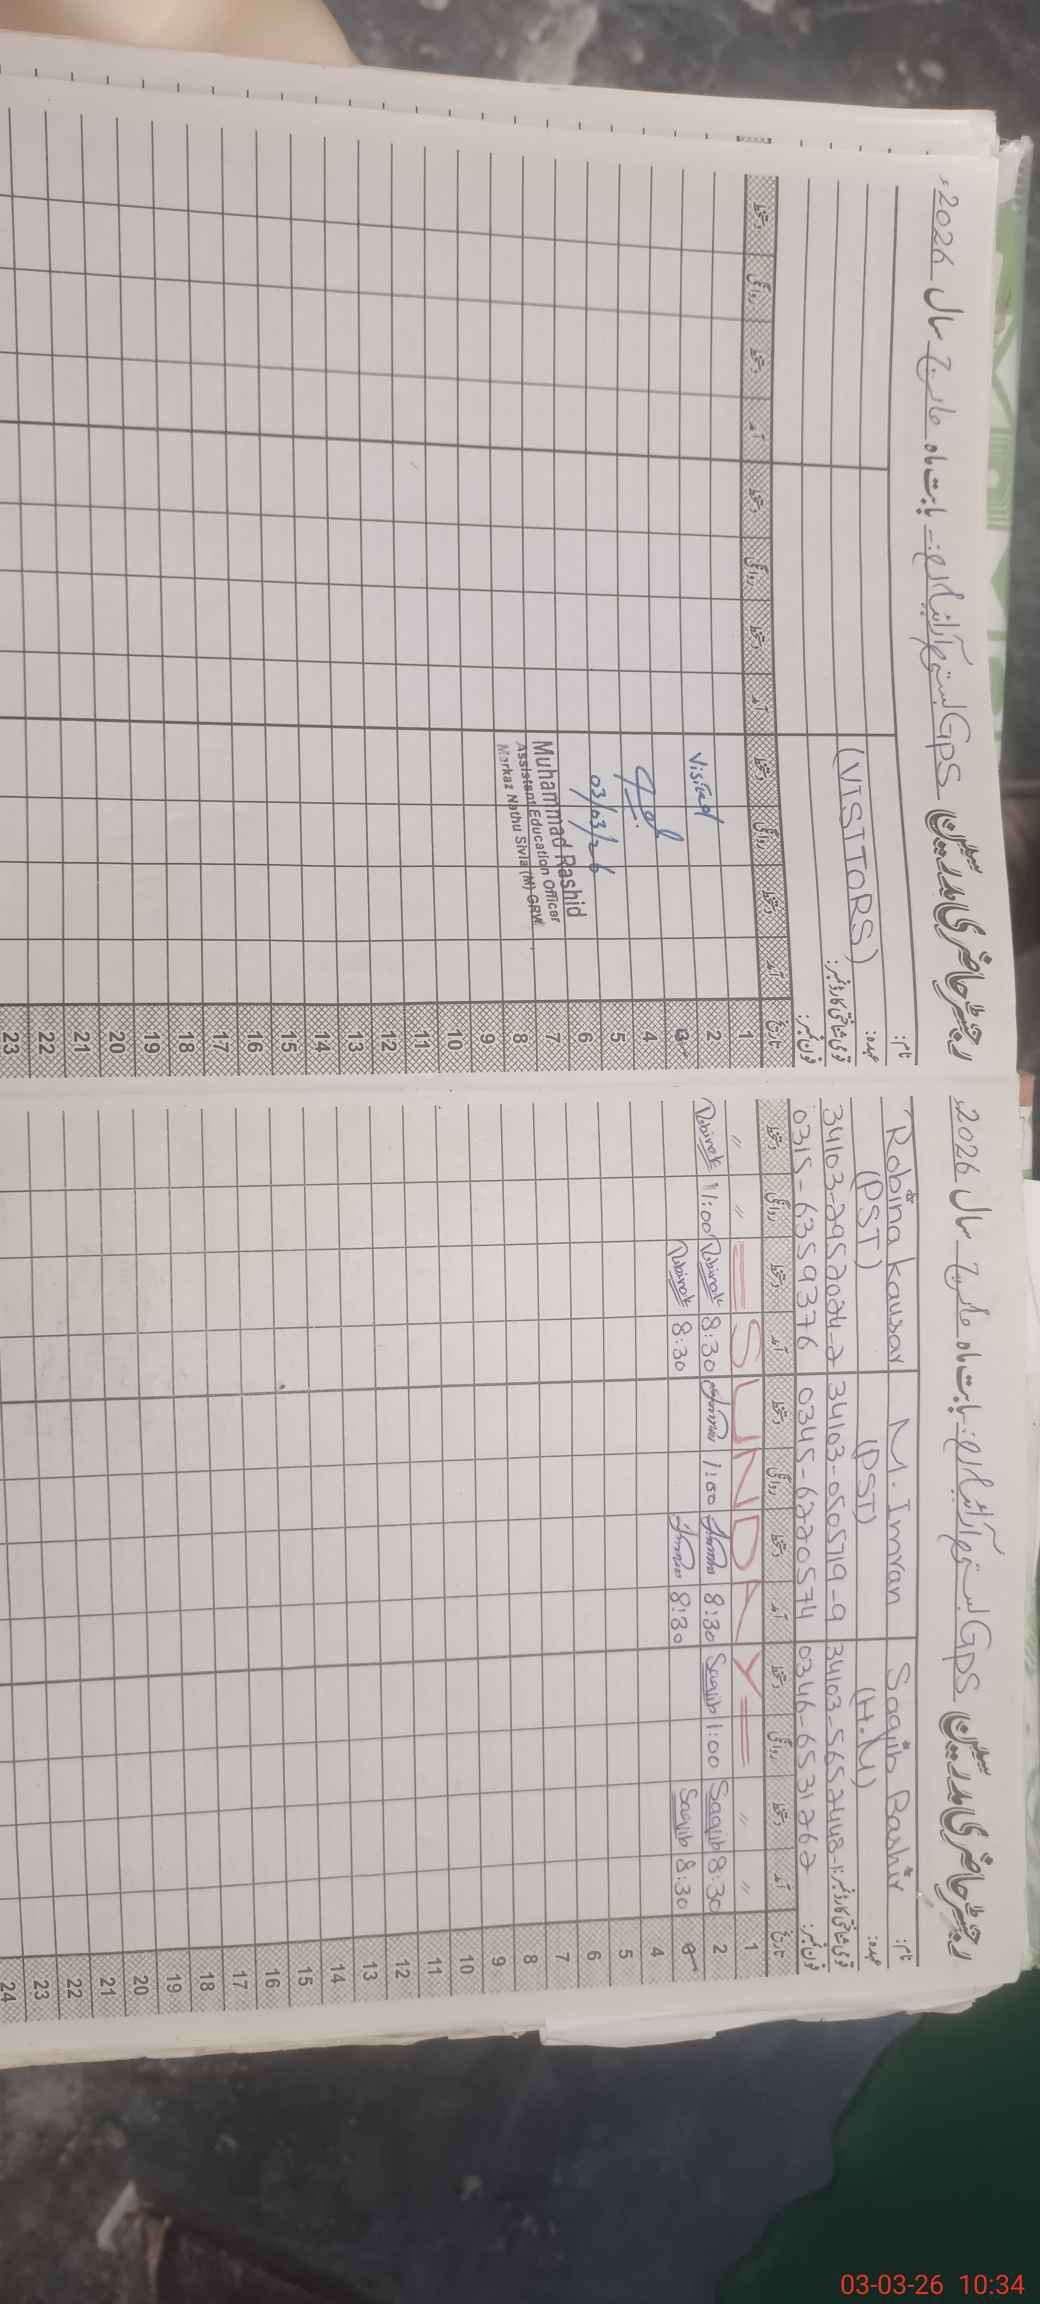 رجسٹر حاضری مدرسین GPS بابت ماہ مارچ سال 2026ء
نام:
(VISITORS)
عہدہ:
قومی شناختی کارڈ نمبر:
فون نمبر:
تاریخ آمد دستخط روانگی دستخط آمد دستخط روانگی دستخط آمد دستخط روانگی دستخط
1
2 Visited
3
4
5
6 03/03/26
7 Muhammad Rashid
8 Assistant Education Officer
9 Markaz Nathu Sivia (M) GRW
10
11
12
13
14
15
16
17
18
19
20
21
22
23
رجسٹر حاضری مدرسین GPS بابت ماہ مارچ سال 2026ء
نام: Saqib Bashir M. Imran Robina kausar
عہدہ: (H.M) (PST) (PST)
قومی شناختی کارڈ نمبر: 34103-5652448-1 34103-0505719-9 34103-2952024-2
فون نمبر: 0346-6531262 0345-6220574 0315-6359376
تاریخ آمد دستخط روانگی دستخط آمد دستخط روانگی دستخط آمد دستخط روانگی دستخط
1 " " = SUNDAY = " "
2 8:30 Saqib 1:00 Saqib 8:30 Imran 1:00 Imran 8:30 Robinak 11:00 Robinak
3 8:30 Saqib 8:30 Imran 8:30 Robinak
4
5
6
7
8
9
10
11
12
13
14
15
16
17
18
19
20
21
22
23
24
03-03-26 10:34